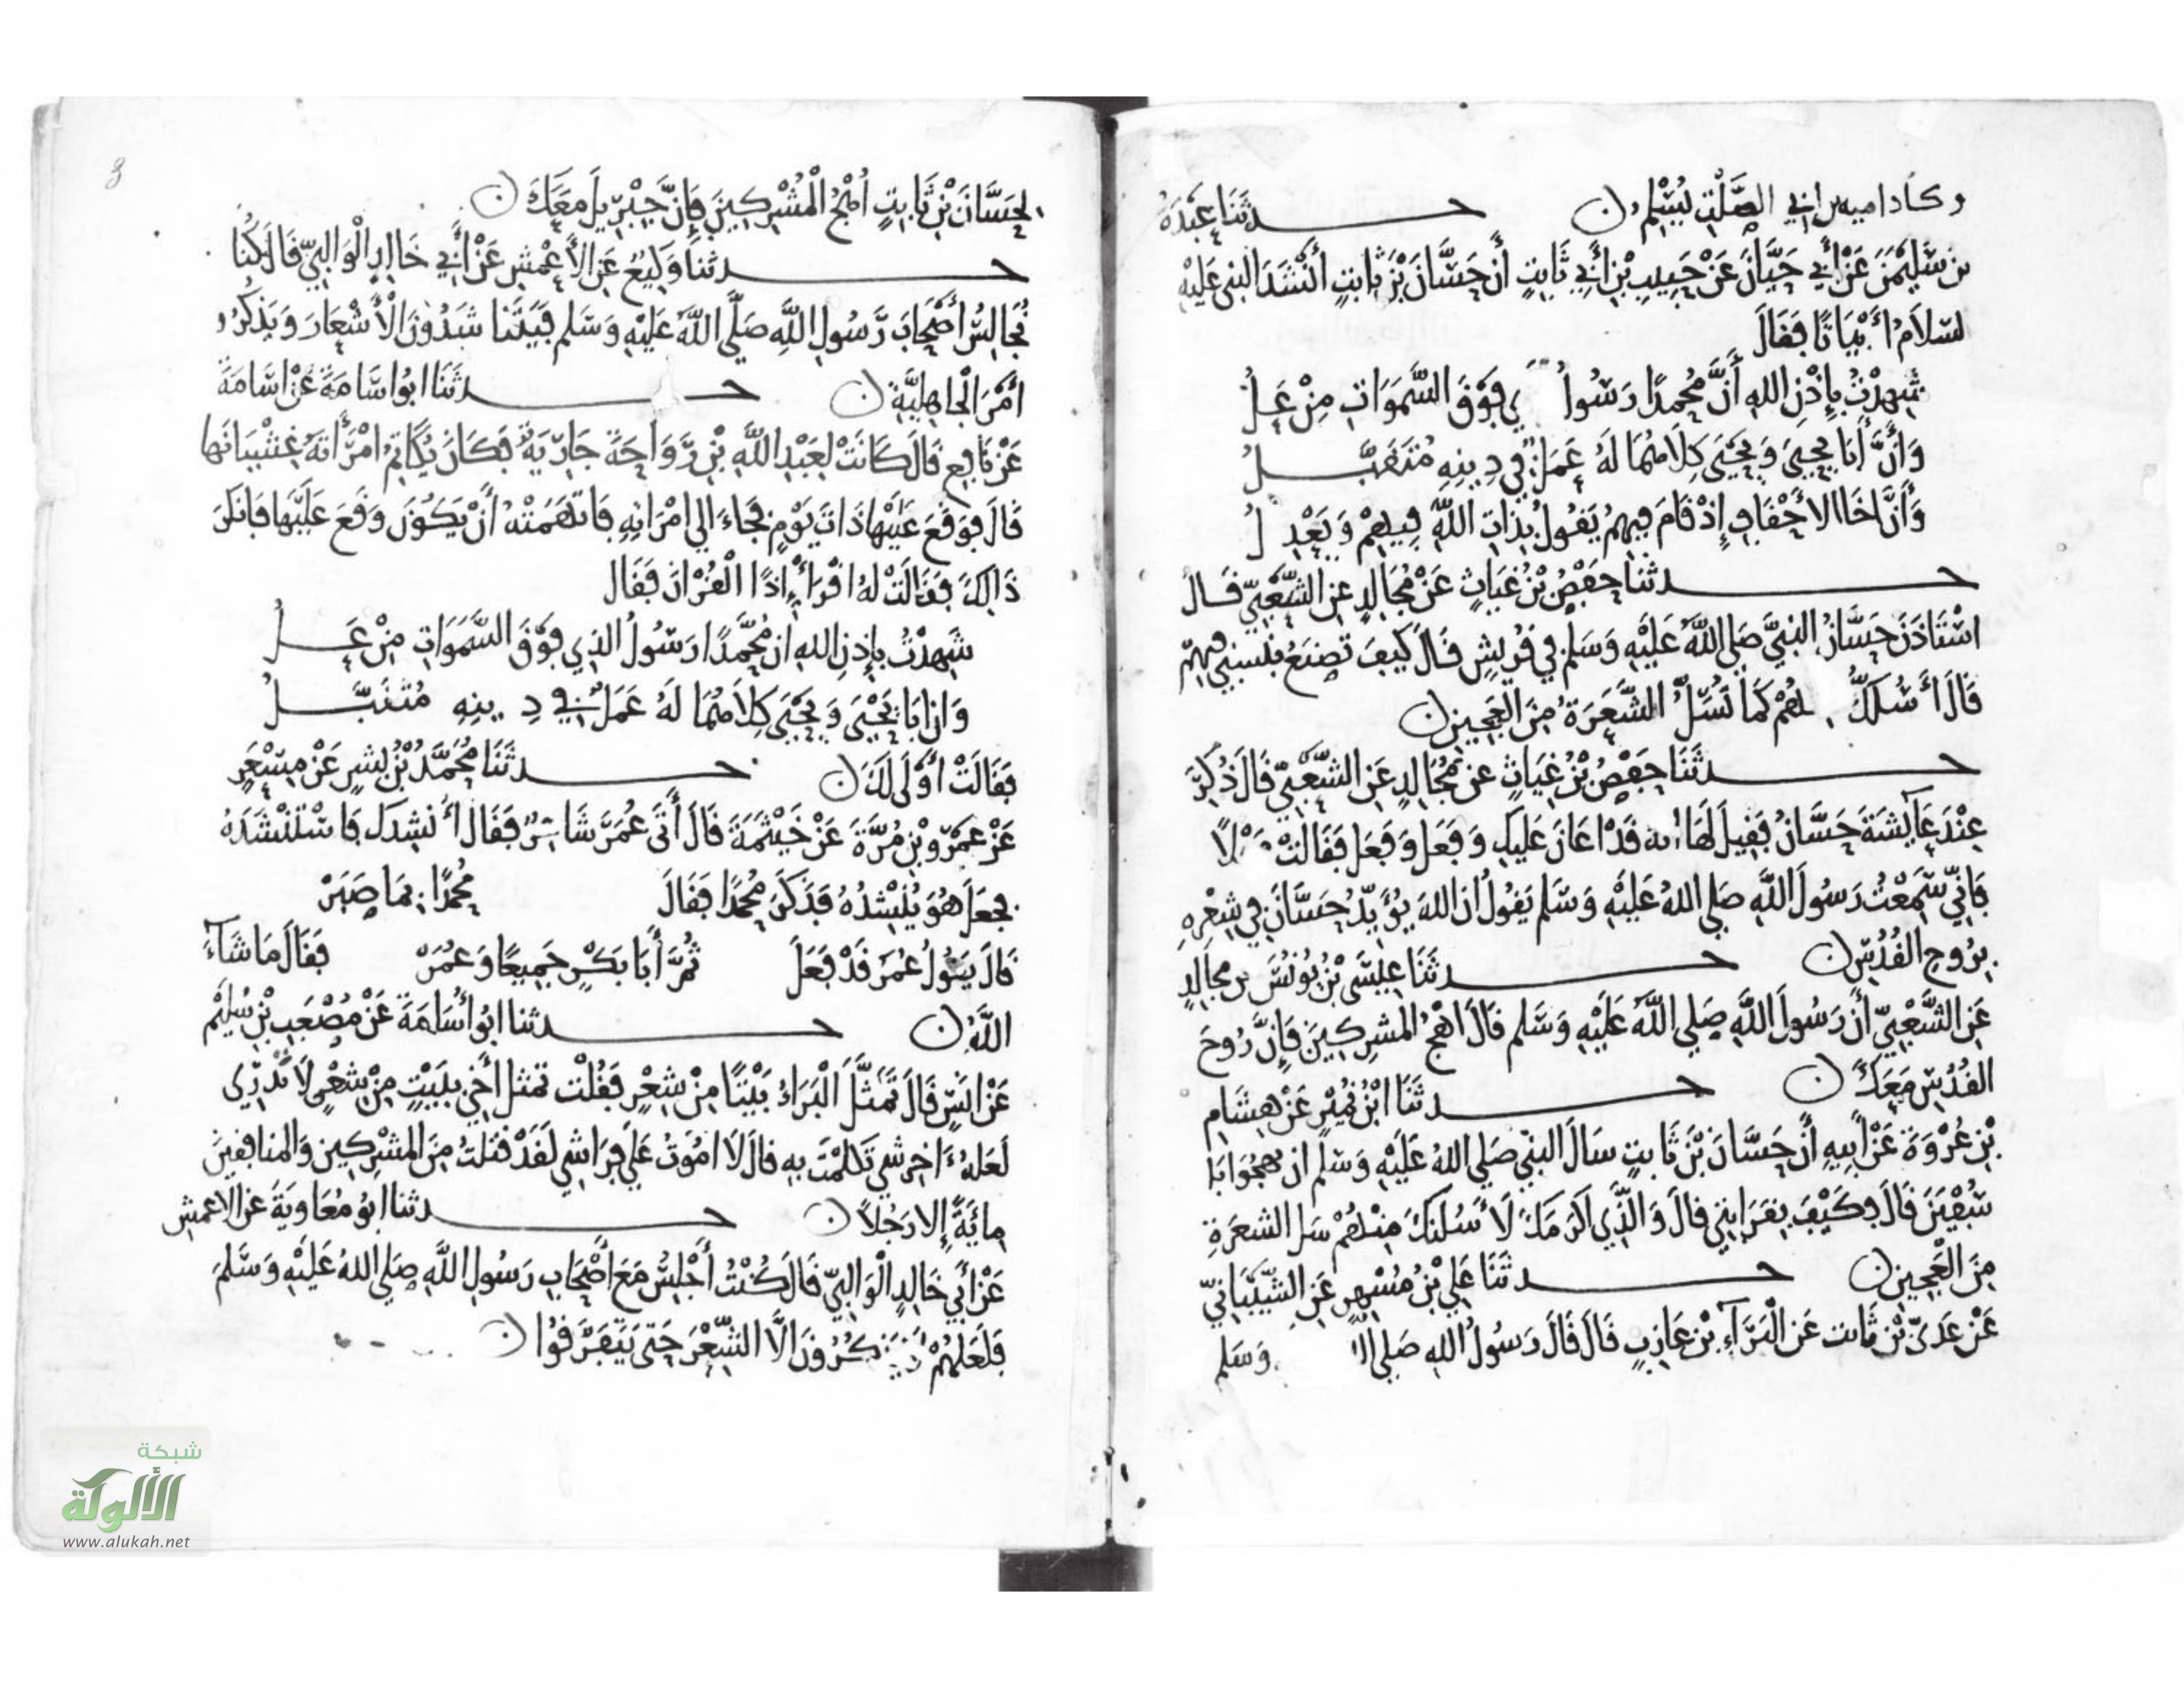 وكاد اميه بن ابي الصلت يسلم ن حدثنا عبدة
بن سليمن عن أبي حيان عن حبيب بن أبي ثابت أن حسان بن ثابت أنشد النبي عليه
السلام أبياتا فقال
شهدت بإذن الله أن محمدا رسول فوق السموات من عل
وأن أبا يحيى ويحيى كلاهما له عمل في دينه متقبل
وأن أخا الاحقاف إذ قام فيهم يقول بذات الله فيهم ويعدل
حدثنا حفص بن غياث عن مجالد عن الشعبي قال
استاذن حسان النبي صلي الله عليه وسلم في قريش قال كيف تصنع بنسبي فيهم
قال أسلك هم كما تسل الشعرة من العجين ن
حدثنا حفص بن غياث عن مجالد عن الشعبي قال ذكر
عند عائشة حسان فقيل لها انه قد اعان عليك وفعل وفعل فقالت مهلا
فاني سمعت رسول الله صلي الله عليه وسلم يقول ان الله يؤيد حسان في شعره
بروح القدس ن حدثنا عيسى بن يونس بن مجالد
عن الشعبي أن رسول الله صلي الله عليه وسلم قال اهج المشركين فإن روح
القدس معك ن حدثنا ابن نمير عن هشام
بن عروة عن أبيه أن حسان بن ثابت سال النبي صلي الله عليه وسلم ان يهجوا ابا
سفين قال وكيف بقرابتي قال والذي اكرمك لأسلنك منهم سل الشعرة
من العجين ن حدثنا علي بن مسهر عن الشيباني
عن عدي بن ثابت عن البرآء بن عازب قال قال رسول الله صلي وسلم
لحسان بن ثابت اهج المشركين فإن جبريل معك ن
حدثنا وكيع عن الأعمش عن أبي خالد الوالبي قال كنا
نجالس أصحاب رسول الله صلى الله عليه وسلم فيتنا شدون الأشعار ويذكرو
أمر الجاهلية ن حدثنا ابو اسامة عن اسامة
عن نافع قال كانت لعبد الله بن رواحة جارية فكان يكاتم امرأته غشيانها
قال فوقع عليها ذات يوم فجاء الي امراته فاتهمته أن يكون وقع عليها فانكر
ذالك فقالت له اقرأ إذا القران فقال
شهدت بإذن الله ان محمدا رسول الذي فوق السموات من عل
وان ابا يحيى ويحيى كلاهما له عمل في دينه متقبل
فقالت أولى لك ن حدثنا محمد بن بشر عن مسعر
عن عمرو بن مرة عن خيثمة قال أتى عمر شاعر فقال أنشدك فاستنشده
فجعل هو ينشده فذكر محمدا فقال محمدا بما صبر
قال يقول عمر قد فعل ثم أبا بكر جميعا وعمر فقال ما شآء
الله ن حدثنا ابو أسامة عن مصعب بن سليم
عن انس قال تمثل البراء بيتا من شعر فقلت تمثل أخي ببيت من شعر لا تدري
لعله ءاخر شي تكلمت به قال لا اموت علي فراشي لقد قتلت من المشركين والمنافقين
مائة إلا رجلا ن حدثنا ابو معاوية عن الاعمش
عن أبي خالد الوالبي قال كنت أجلس مع أصحاب رسول الله صلي الله عليه وسلم
فلعلهم يذكرون الا الشعر حتى يتفرقوا ن
3
شبكة
الألوكة
www.alukah.net